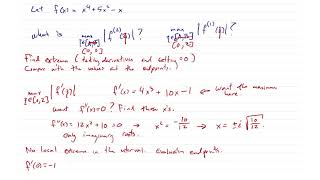 Let f(x) = x⁴ + 5x² - x
What is max |f⁽²⁾(p)| ? max |f⁽³⁾(p)| ?
[0, 2] [0, 2]
Find extrema (taking derivatives and setting = 0)
Compare with the values at the endpoints.
max |f'(p)| f'(x) = 4x³ + 10x - 1 ← Want the maximum here
p∈[0,2]
Want f''(x) = 0? Find those x's.
f''(x) = 12x² + 10 = 0 → x² = -10/12 → x = ± i √(10/12)
Only imaginary roots.
No local extrema in the interval. Evaluate endpoints.
f'(0) = -1